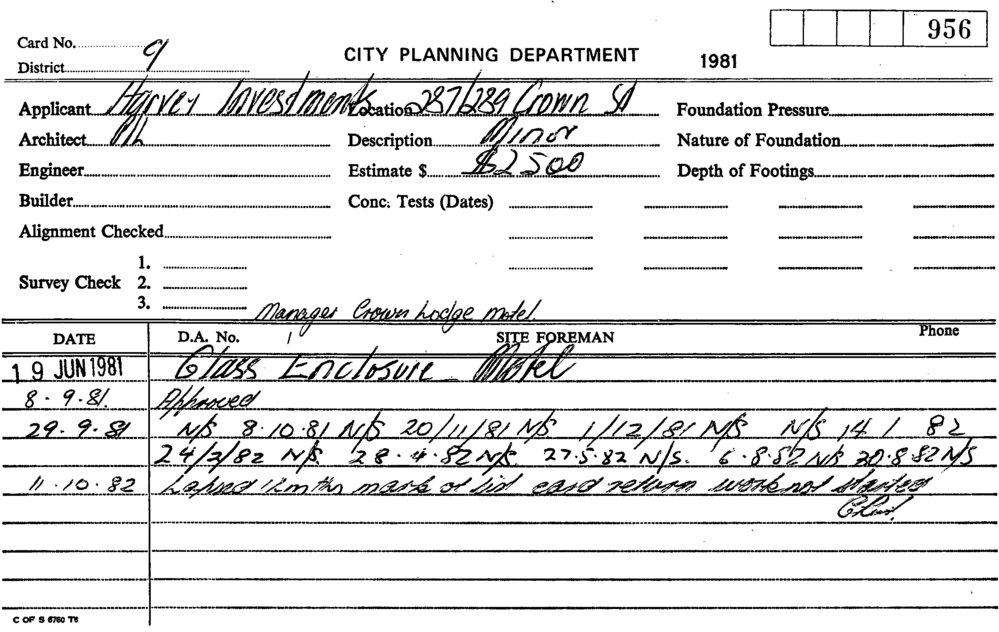 956
Card No. 9
CITY PLANNING DEPARTMENT 1981
District
Applicant Harvey Investments Location 287/289 Crown St Foundation Pressure
Architect Description Minor Nature of Foundation
Engineer Estimate $ $2500 Depth of Footings
Builder Conc. Tests (Dates)
Alignment Checked
1.
Survey Check 2.
3.
Manager Crown Lodge Motel.
DATE D.A. No. SITE FOREMAN Phone
19 JUN 1981 Glass Enclosure - Motel
8-9-81. Approved
29-9-81 N/S 8-10-81 N/S 20/11/81 N/S 1/12/81 N/S N/S 14 1 82
24/2/82 N/S. 28-4-82 N/S. 27-5-82 N/S. 6-8-82 N/S 20-8-82 N/S
11-10-82 Lapsed 12 mths mark of list card return work not started
C OF S 6760 T6